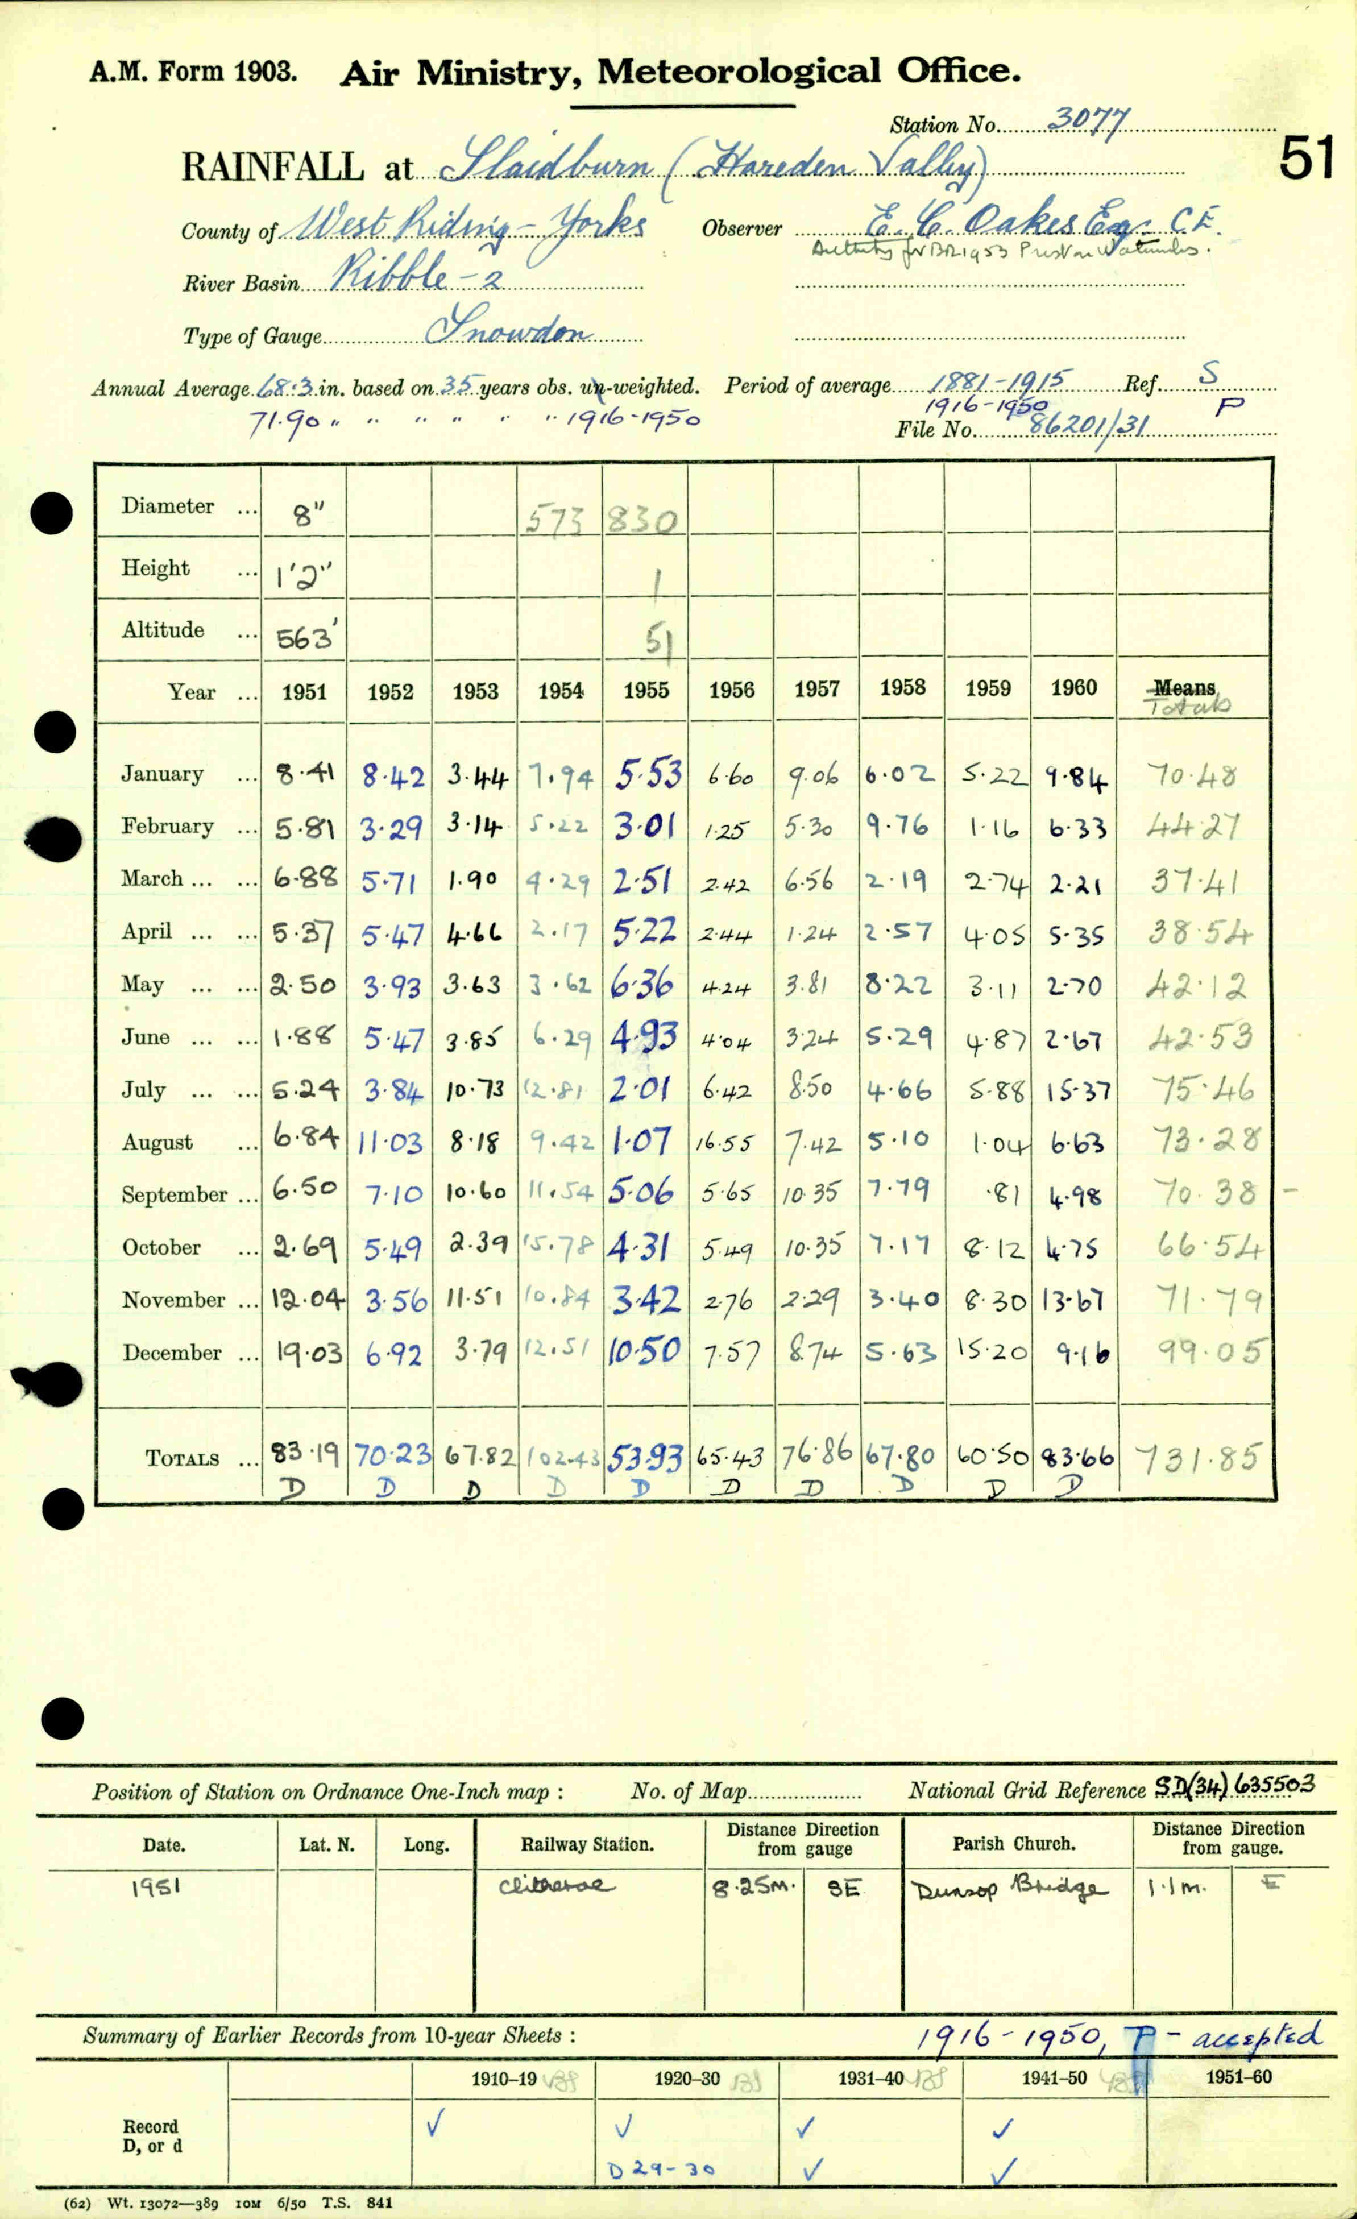 A.M. Form 1903. Air Ministry, Meteorological Office.
Station No. 3077
51
RAINFALL at Slaidburn (Hareden Valley)
County of West Riding - Yorks Observer E. C. Oakes Esq. C.E.
Authority for BR1953 Preston Waterworks.
River Basin Ribble - 2
Type of Gauge Snowdon
Annual Average 68.3 in. based on 35 years obs. un-weighted. Period of average 1881-1915 Ref. S
71.90 " " " " " " 1916-1950 1916-1950 P
File No. 86201/31
Diameter ... 8" 573 830
Height ... 1'2" 1
Altitude ... 563' 51
Year ... 1951 1952 1953 1954 1955 1956 1957 1958 1959 1960 Means
Totals
January ... 8.41 8.42 3.44 7.94 5.53 6.60 9.06 6.02 5.22 9.84 70.48
February ... 5.81 3.29 3.14 5.22 3.01 1.25 5.30 9.76 1.16 6.33 44.27
March ... ... 6.88 5.71 1.90 4.29 2.51 2.42 6.56 2.19 2.74 2.21 37.41
April ... ... 5.37 5.47 4.66 2.17 5.22 2.44 1.24 2.57 4.05 5.35 38.54
May ... ... 2.50 3.93 3.63 3.62 6.36 4.24 3.81 8.22 3.11 2.70 42.12
June ... ... 1.88 5.47 3.85 6.29 4.93 4.04 3.24 5.29 4.87 2.67 42.53
July ... ... 5.24 3.84 10.73 12.81 2.01 6.42 8.50 4.66 5.88 15.37 75.46
August ... 6.84 11.03 8.18 9.42 1.07 16.55 7.42 5.10 1.04 6.63 73.28
September ... 6.50 7.10 10.60 11.54 5.06 5.65 10.35 7.79 .81 4.98 70.38 -
October ... 2.69 5.49 2.39 15.78 4.31 5.49 10.35 7.17 8.12 4.75 66.54
November ... 12.04 3.56 11.51 10.84 3.42 2.76 2.29 3.40 8.30 13.67 71.79
December ... 19.03 6.92 3.79 12.51 10.50 7.57 8.74 5.63 15.20 9.16 99.05
TOTALS ... 83.19 70.23 67.82 102.43 53.93 65.43 76.86 67.80 60.50 83.66 731.85
D D D D D D D D D D
Position of Station on Ordnance One-Inch map : No. of Map National Grid Reference SD(34) 635503
Date. Lat. N. Long. Railway Station. Distance from Direction gauge Parish Church. Distance from Direction gauge.
1951 Clitheroe 8.25m. SE Dunsop Bridge 1.1m. E
Summary of Earlier Records from 10-year Sheets : 1916-1950, P - accepted
1910-19 1920-30 1931-40 1941-50 1951-60
Record ✓ ✓ ✓ ✓
D, or d D 29-30 ✓ ✓
(62) Wt. 13072—389 10M 6/50 T.S. 841